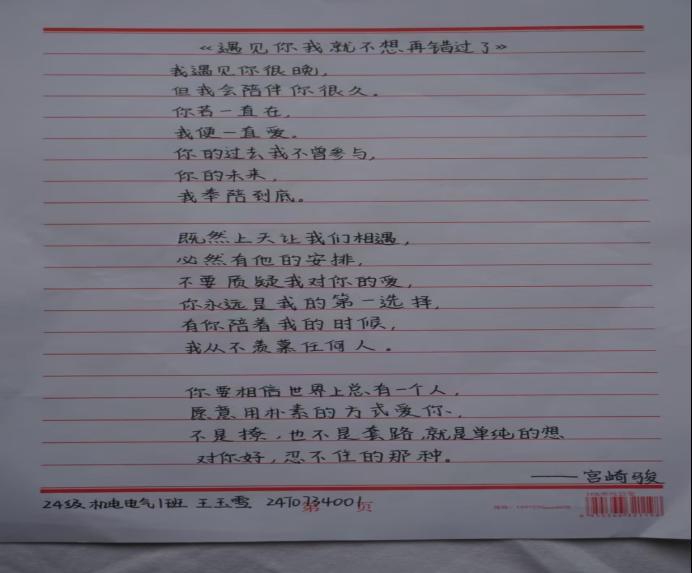 《遇见你我就不想再错过了》
我遇见你很晚，
但我会陪伴你很久。
你若一直在，
我便一直爱。
你的过去我不曾参与，
你的未来，
我奉陪到底。
既然上天让我们相遇，
必然有他的安排，
不要质疑我对你的爱，
你永远是我的第一选择，
有你陪着我的时候，
我从不羡慕任何人。
你要相信世界上总有一个人，
愿意用朴素的方式爱你，
不是撩，也不是套路，就是单纯的想
对你好，忍不住的那种。
——宫崎骏
24级机电电气1班 王玉雪
第 页